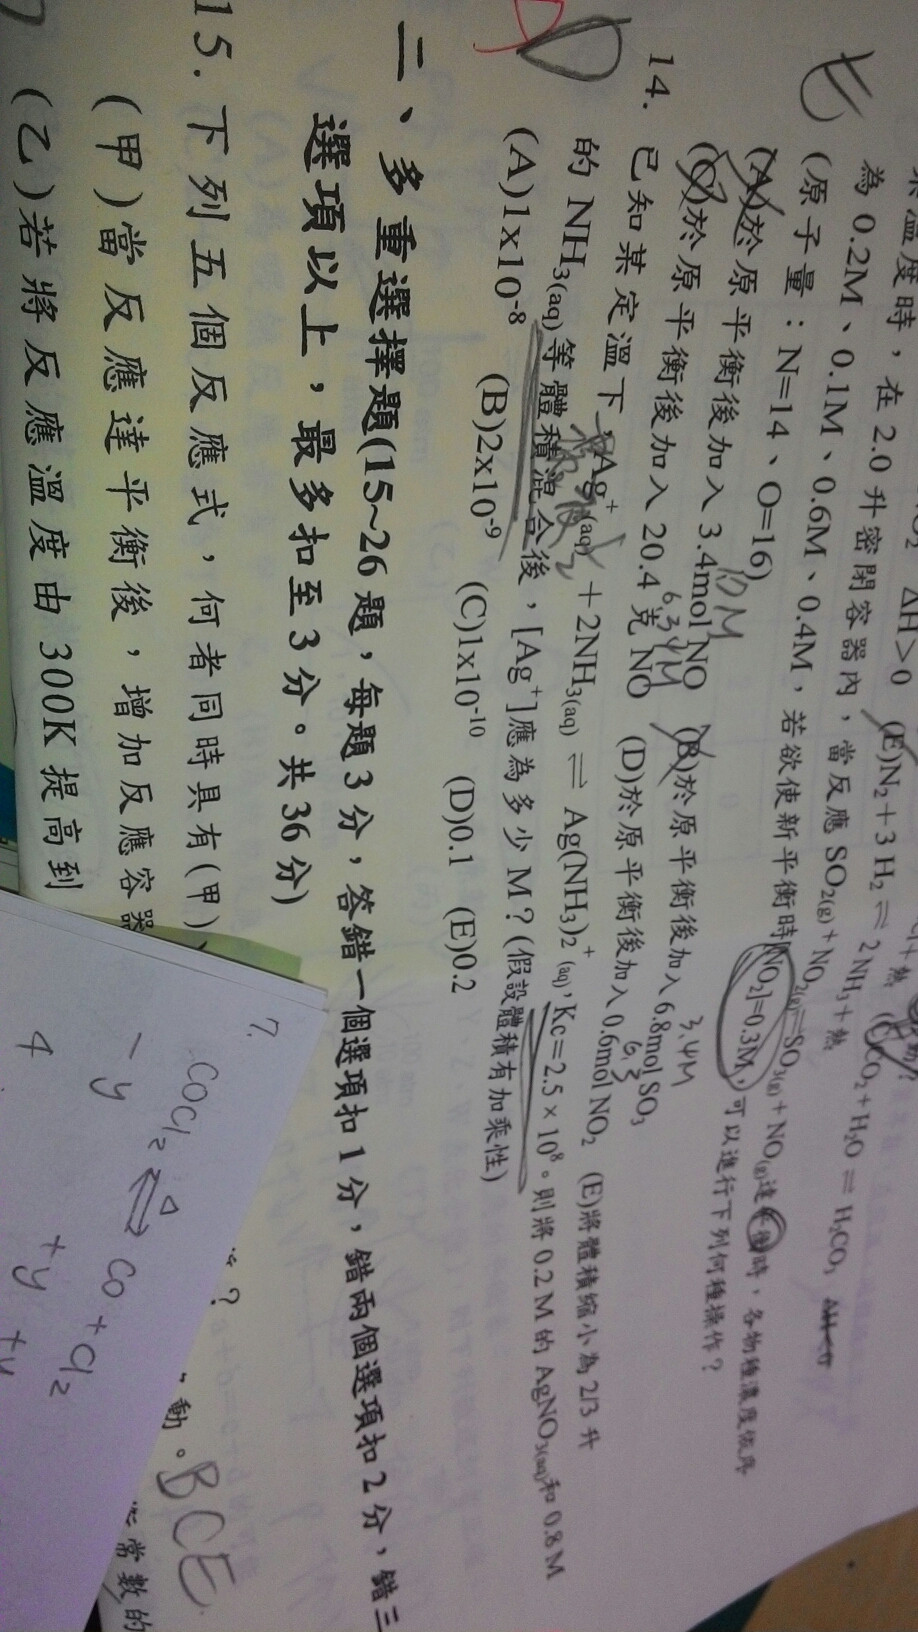 ΔH>0 (E)N₂+3H₂⇌2NH₃+熱 CO₂+H₂O⇌H₂CO₃
溫度時，在2.0升密閉容器內，當反應SO₂(g)+NO₂(g)⇌SO₃(g)+NO(g)達平衡時，各物種濃度依序
為0.2M、0.1M、0.6M、0.4M，若欲使新平衡時[NO₂]=0.3M，可以進行下列何種操作？
(原子量：N=14、O=16)
10M
(A)於原平衡後加入3.4mol NO (B)於原平衡後加入6.8mol SO₃
3.4M
(C)於原平衡後加入20.4克NO (D)於原平衡後加入0.6mol NO₂ (E)將體積縮小為2/3升
14. 已知某定溫下，Ag⁺(aq)+2NH₃(aq)⇌Ag(NH₃)₂⁺(aq)，Kc=2.5×10⁸。則將0.2M的AgNO₃(aq)和0.8M
的NH₃(aq)等體積混合後，[Ag⁺]應為多少M？(假設體積有加乘性)
(A)1x10⁻⁸ (B)2x10⁻⁹ (C)1x10⁻¹⁰ (D)0.1 (E)0.2
二、多重選擇題(15~26題，每題3分，答錯一個選項扣1分，錯兩個選項扣2分，錯三
選項以上，最多扣至3分。共36分)
15. 下列五個反應式，何者同時具有(甲)
(甲)當反應達平衡後，增加反應容器
動。BCE
(乙)若將反應溫度由300K提高到
常數的
7. COCl₂ ⇌ CO + Cl₂
-y +y
4